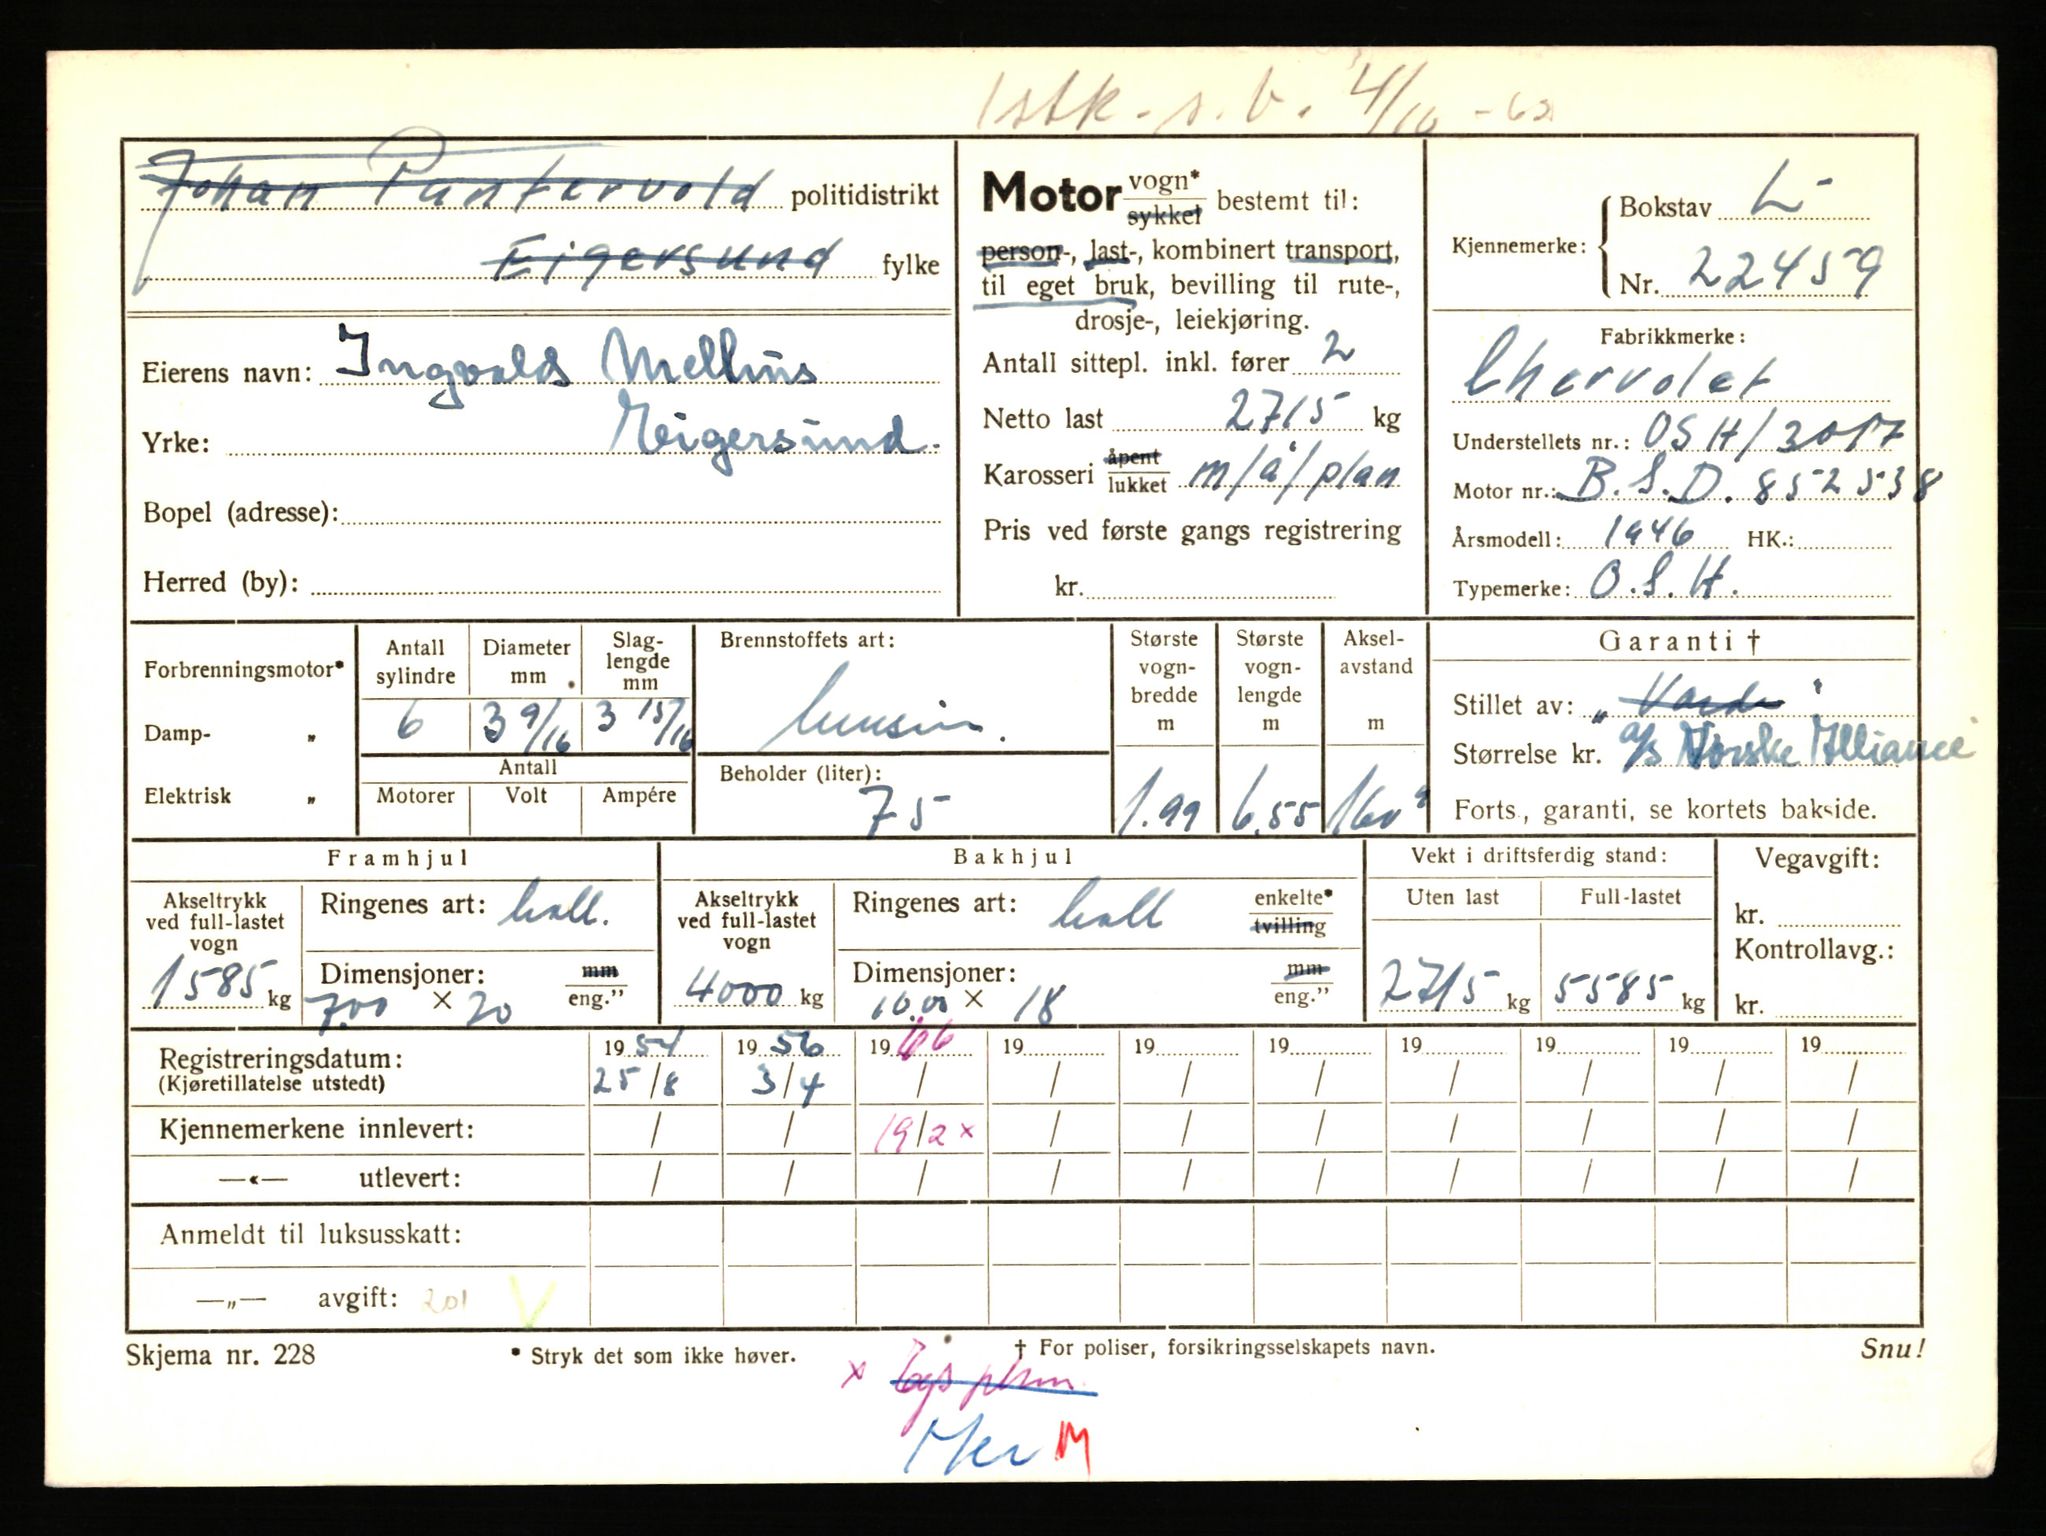 1 stk. s.b. 4/10 - 62
Johan Pantervold politidistrikt
Eigersund fylke
Eierens navn: Ingvald Mellus
Yrke: Eigersund.
Bopel (adresse):
Herred (by):
Motor vogn* sykkel bestemt til:
person-, last-, kombinert transport,
til eget bruk, bevilling til rute-,
drosje-, leiekjøring.
Antall sittepl. inkl. fører 2
Netto last 2715 kg
Karosseri åpent lukket m/å/plan
Pris ved første gangs registrering
kr.
Kjennemerke: Bokstav L-
Nr. 22459
Fabrikkmerke:
Chervolet
Understellets nr.: OSH/3017
Motor nr.: B.S.D. 852538
Årsmodell: 1946 HK.:
Typemerke: O.S.H.
Forbrenningsmotor*
Damp- „
Elektrisk „
Antall sylindre
6
Diameter mm
3 9/16
Slag-lengde mm
3 15/16
Antall
Motorer Volt Ampére
Brennstoffets art:
bensin.
Beholder (liter):
75
Største vogn-bredde m
1.99
Største vogn-lengde m
6.55
Aksel-avstand m
160"
Garanti †
Stillet av: „Varde"
Størrelse kr. a/s Norske Alliance
Forts., garanti, se kortets bakside.
Framhjul
Akseltrykk ved full-lastet vogn
1585 kg
Ringenes art: ball.
Dimensjoner: mm eng."
7.00 × 20
Bakhjul
Akseltrykk ved full-lastet vogn
4000 kg
Ringenes art: ball enkelte* tvilling
Dimensjoner: mm eng."
10.00 × 18
Vekt i driftsferdig stand:
Uten last Full-lastet
2715 kg 5585 kg
Vegavgift:
kr.
Kontrollavg.:
kr.
Registreringsdatum: 19 54 19 56 19 66 19 19 19 19 19 19 19
(Kjøretillatelse utstedt) 25/8 3/4 / / / / / / / /
Kjennemerkene innlevert: / / 19/2 x / / / / / / /
—«— utlevert: / / / / / / / / / /
Anmeldt til luksusskatt:
—„— avgift: 201 V
Skjema nr. 228 * Stryk det som ikke høver. † For poliser, forsikringsselskapets navn. Snu!
x
M